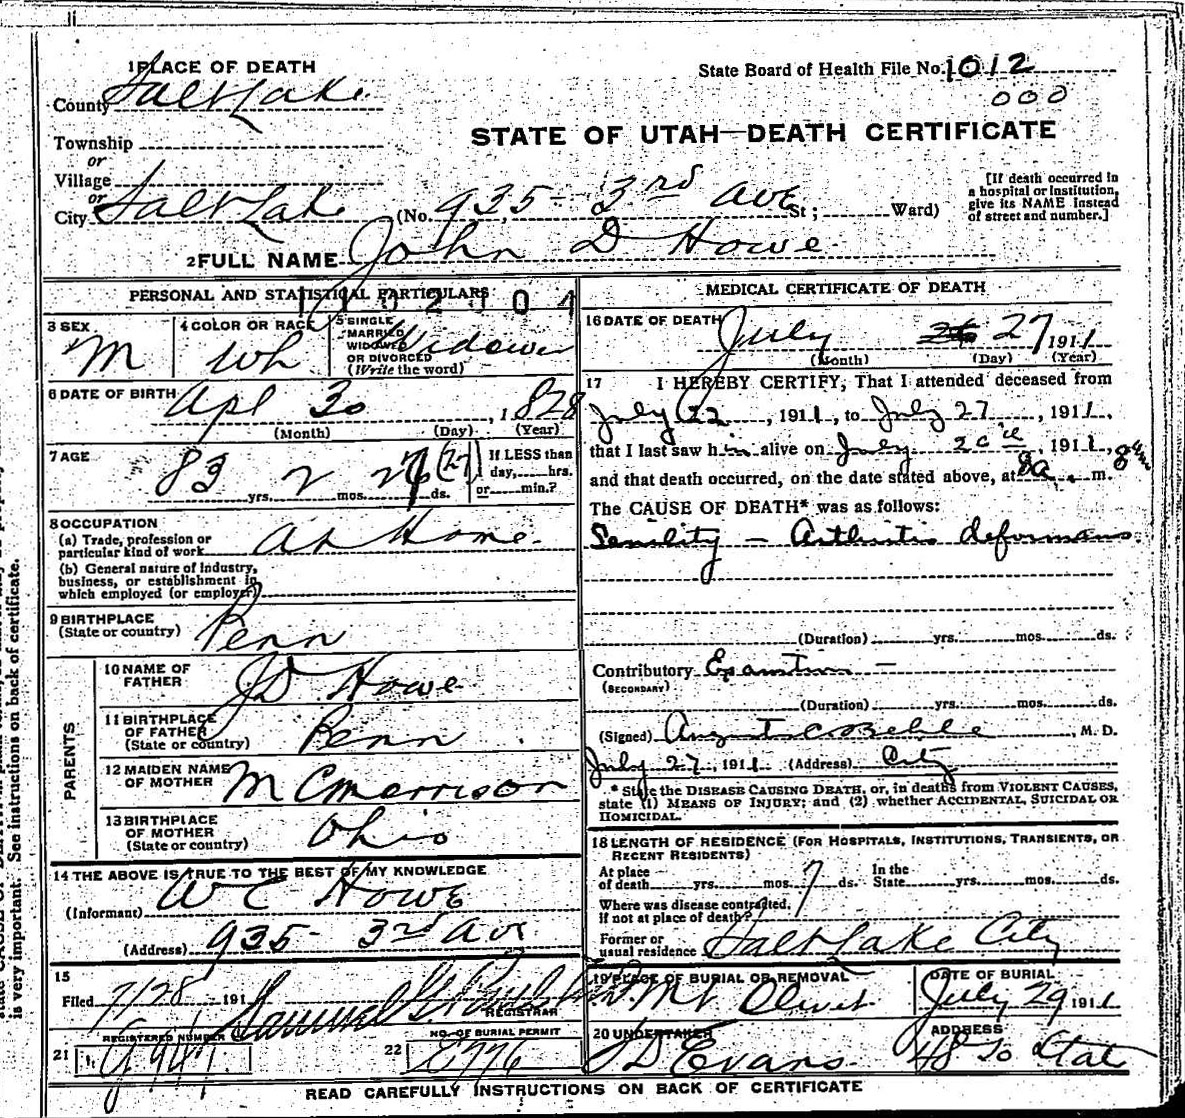 1 PLACE OF DEATH
County Salt Lake
State Board of Health File No. 1012
000
STATE OF UTAH—DEATH CERTIFICATE
Township
or
Village
or
City Salt Lake (No. 935 - 3rd Ave St; Ward)
[If death occurred in
a hospital or institution,
give its NAME instead
of street and number.]
2 FULL NAME John D Howe
PERSONAL AND STATISTICAL PARTICULARS
3 SEX M
4 COLOR OR RACE Wh
5 SINGLE
MARRIED
WIDOWED
OR DIVORCED
(Write the word)
Widower
6 DATE OF BIRTH Apl 30, 1828
(Month) (Day) (Year)
7 AGE
83 yrs. 2 mos. 26 (27) ds.
If LESS than
1 day, hrs.
or min.?
8 OCCUPATION
(a) Trade, profession or
particular kind of work At Home
(b) General nature of industry,
business, or establishment in
which employed (or employer)
9 BIRTHPLACE
(State or country) Penn
PARENTS
10 NAME OF
FATHER J D Howe
11 BIRTHPLACE
OF FATHER
(State or country) Penn
12 MAIDEN NAME
OF MOTHER M Cmorrison
13 BIRTHPLACE
OF MOTHER
(State or country) Ohio
14 THE ABOVE IS TRUE TO THE BEST OF MY KNOWLEDGE
(Informant) W C Howe
(Address) 935 - 3rd Ave
15
Filed 7/28 191
REGISTRAR
REGISTERED NUMBER
21
NO. OF BURIAL PERMIT
22 E776
MEDICAL CERTIFICATE OF DEATH
16 DATE OF DEATH July 27, 1911
(Month) (Day) (Year)
17 I HEREBY CERTIFY, That I attended deceased from
July 22, 1911, to July 27, 1911,
that I last saw him alive on July, 1911,
and that death occurred, on the date stated above, at 8a m.
The CAUSE OF DEATH* was as follows:
Senility - Arthritis deformans
(Duration) yrs. mos. ds.
Contributory
(SECONDARY)
(Duration) yrs. mos. ds.
(Signed) August C Behle, M. D.
July 27, 1911 (Address) City
* State the DISEASE CAUSING DEATH, or, in deaths from VIOLENT CAUSES,
state (1) MEANS OF INJURY; and (2) whether ACCIDENTAL, SUICIDAL OR
HOMICIDAL.
18 LENGTH OF RESIDENCE (FOR HOSPITALS, INSTITUTIONS, TRANSIENTS, OR
RECENT RESIDENTS)
At place
of death yrs. mos. 7 ds.
In the
State yrs. mos. ds.
Where was disease contracted,
if not at place of death?
Former or
usual residence Salt Lake City
19 PLACE OF BURIAL OR REMOVAL
Mt Olivet
DATE OF BURIAL
July 29 1911
20 UNDERTAKER
J D Evans
ADDRESS
48 So State
READ CAREFULLY INSTRUCTIONS ON BACK OF CERTIFICATE
is very important. See instructions on back of certificate.